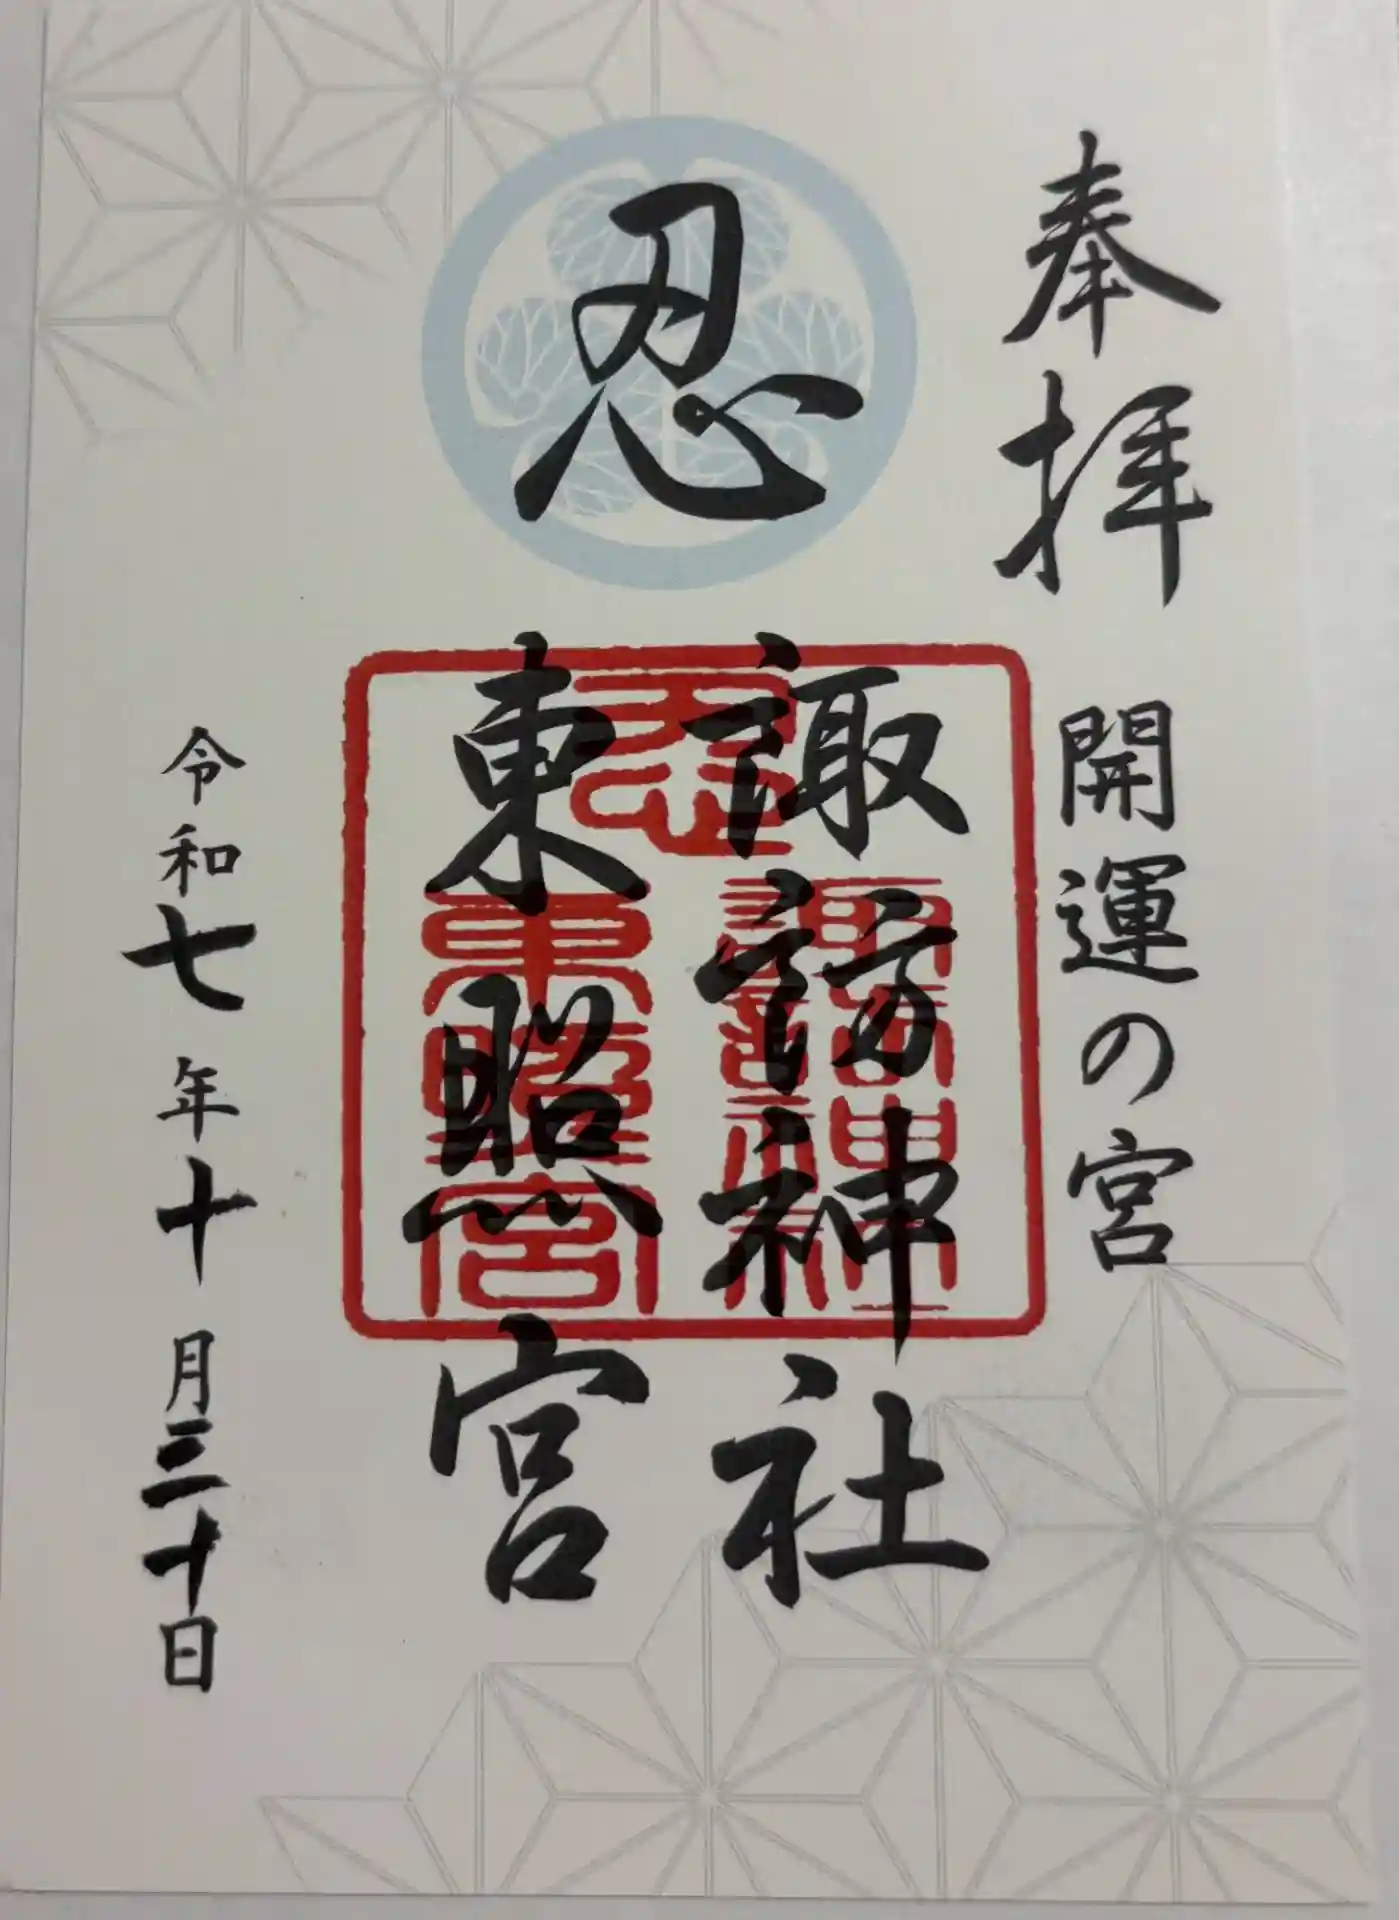 奉拝 開運の宮
忍
諏訪神社
東照宮
忍
諏訪神社
東照宮
令和七年十月三十日